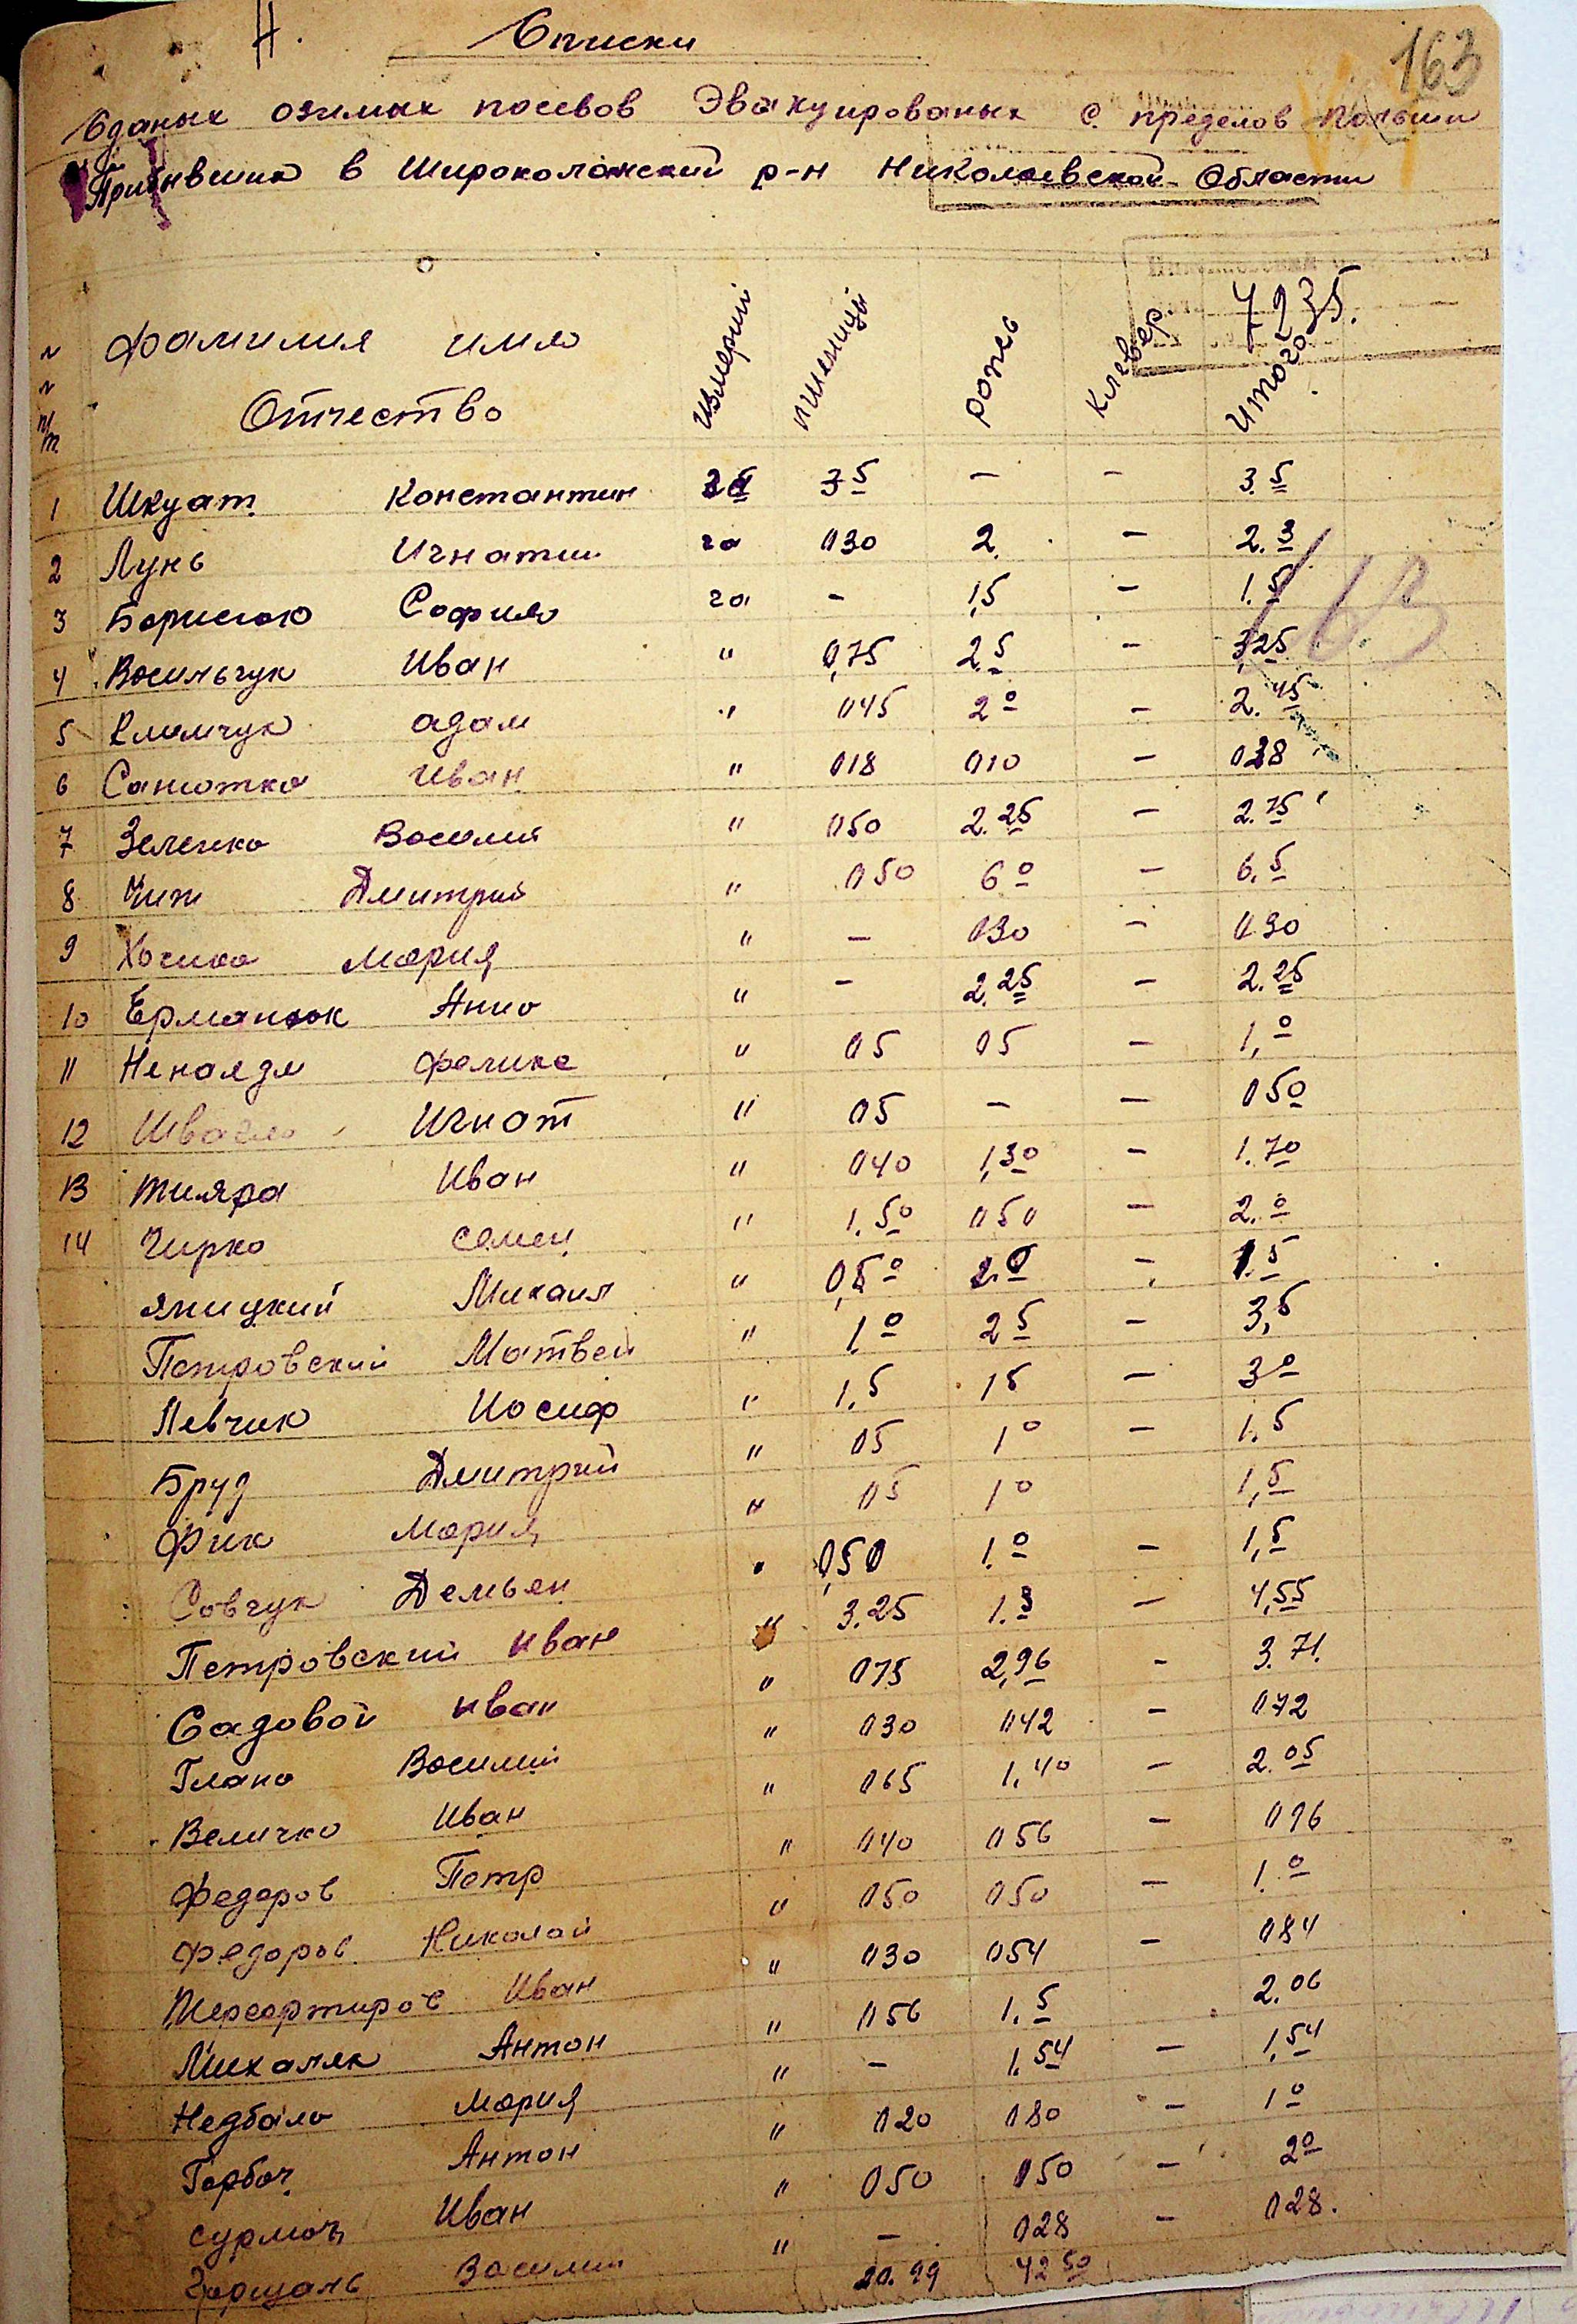 Н. Списки 163
Сданых озимых посевов Эвакуированых с пределов Польши
Прибывших в Широколановский р-н Николаевской Области
7235.
Фамилия имя Измерит пшеницы рожь Клевер итого
Отчество
1 Шкуат Константин га 3 5 — — 3.5
2 Лунь Игнатий га 030 2. — 2.3
3 Борисюк София га — 1,5 — 1.5
4 Васильчук Иван " 0,75 2.5 — 3,25
5 Климчук адам " 045 2 0 — 2.45
6 Санютка Иван " 018 010 — 028
7 Зеленко Василий " 050 2.25 — 2.75
8 Чиж Дмитрий " 050 6 0 — 6.5
9 Мария " — 030 — 030
10 Ерманюк Анна " — 2.25 — 2.25
11 Феликс " 05 05 — 1,0
12 Игнат " 05 — — 050
13 Иван " 040 1,30 — 1.70
14 Чирко Семен " 1.50 050 — 2.0
Яницкий Михаил " 0,50 — 1.5
Петровский Матвей " 1.0 2 5 — 3,5
Левчик Иосиф " 1,5 15 — 3 0
Бруд Дмитрий " 05 1 0 — 1.5
Фик Мария " 05 1 0 1,5
Совчук Демьян " 0,50 1.0 — 1,5
Петровский Иван " 3.25 1.3 — 4,55
Садовой Иван " 075 2,96 — 3.71.
Василий " 030 042 — 072
Величко Иван " 065 1,40 — 2.05
Федоров Петр " 040 056 — 096
Федоров Николай " 050 050 — 1.0
Иван " 030 054 — 084
Михаляк Антон " 056 1.5 2.06
Недбало Мария " — 1.54 — 1,54
Горбач Антон " 020 080 — 1 0
Сурмач Иван " 050 150 — 2 0
Василий " — 028 — 028.
20.99 42 50